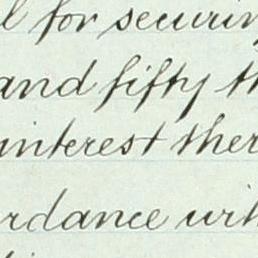 l for securing
and fifty th
interest ther
rdance with